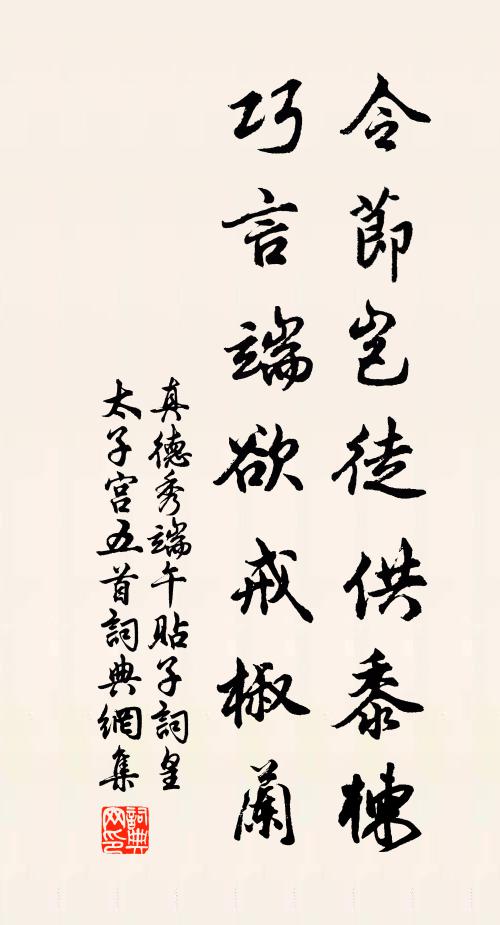 令節岂徒供黍楝
巧言端欲戒椒蘭
真德秀端午貼子詞皇
太子宫五首詞典網集
詞典网印